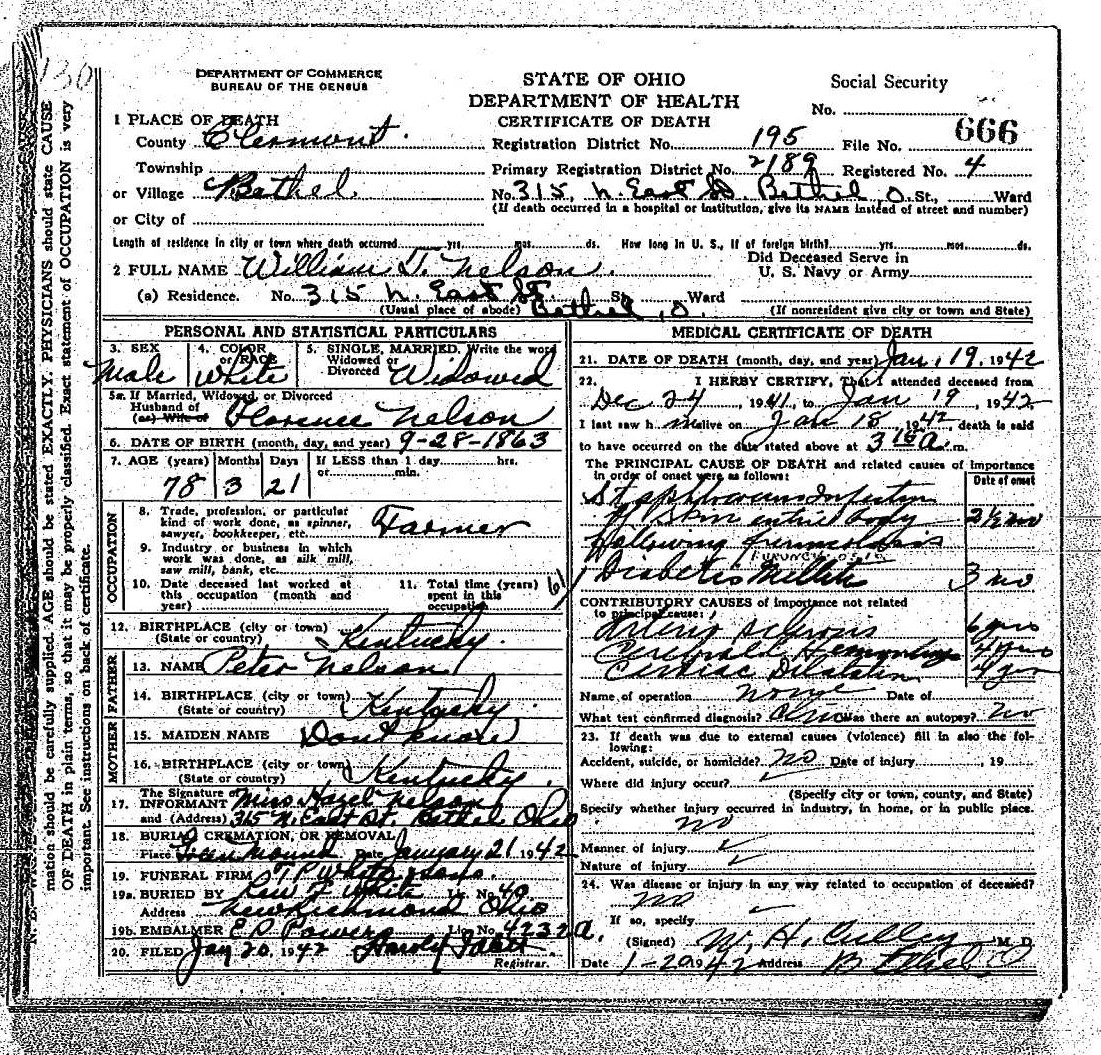 130
DEPARTMENT OF COMMERCE
BUREAU OF THE CENSUS
STATE OF OHIO
DEPARTMENT OF HEALTH
CERTIFICATE OF DEATH
Social Security
No.
1 PLACE OF DEATH
County Clermont.
Registration District No. 195 File No. 666
Township
Primary Registration District No. 2189 Registered No. 4
or Village Bethel.
No. 315, N. East St. Bethel, O. St., Ward
(If death occurred in a hospital or institution, give its NAME instead of street and number)
or City of
Length of residence in city or town where death occurred yrs. mos. ds. How long in U. S., if of foreign birth? yrs. mos. ds.
2 FULL NAME William T. Nelson.
Did Deceased Serve in
U. S. Navy or Army
(a) Residence. No. 315 N. East St. St. Ward
(Usual place of abode) Bethel, O. (If nonresident give city or town and State)
PERSONAL AND STATISTICAL PARTICULARS
3. SEX Male
4. COLOR or RACE White
5. SINGLE, MARRIED, Write the word
Widowed or
Divorced Widowed
5a. If Married, Widowed, or Divorced
Husband of
(or) Wife of Florence Nelson
6. DATE OF BIRTH (month, day, and year) 9-28-1863
7. AGE (years) Months Days If LESS than 1 day hrs.
or min.
78 3 21
OCCUPATION
8. Trade, profession, or particular
kind of work done, as spinner,
sawyer, bookkeeper, etc. Farmer
9. Industry or business in which
work was done, as silk mill,
saw mill, bank, etc.
10. Date deceased last worked at
this occupation (month and
year)
11. Total time (years)
spent in this
occupation 61
12. BIRTHPLACE (city or town)
(State or country) Kentucky.
FATHER
13. NAME Peter Nelson
14. BIRTHPLACE (city or town)
(State or country) Kentucky.
MOTHER
15. MAIDEN NAME Dont know
16. BIRTHPLACE (city or town)
(State or country) Kentucky.
17. The Signature of
INFORMANT Miss Hazel Nelson
and (Address) 315 N. East St. Bethel, Ohio
18. BURIAL, CREMATION, OR REMOVAL
Place Green Mound Date January 21 1942
19. FUNERAL FIRM T. P. White & Sons.
19a. BURIED BY White Lic. No. 40
Address New Richmond Ohio
19b. EMBALMER E D Powers Lic. No. 4232a.
20. FILED Jan 20, 1942
Registrar.
MEDICAL CERTIFICATE OF DEATH
21. DATE OF DEATH (month, day, and year) Jan, 19, 1942
22. I HERBY CERTIFY, That I attended deceased from
Dec 24, 1941, to Jan 19, 1942
I last saw h m alive on Jan 18, 1942 death is said
to have occurred on the date stated above at 3 15 a. m.
The PRINCIPAL CAUSE OF DEATH and related causes of Importance
in order of onset were as follows:
Date of onset
Infection
of skin entire body 2½ mo
following furunculosis
FURUNCULOSIS
Diabetis Mellitis 3 mo
CONTRIBUTORY CAUSES of importance not related
to principal cause:
Arterio Sclerosis 6 yrs
Cerebral Hemorrhage 4 yrs
Cardiac Dilatation 4 yr
Name of operation None Date of
What test confirmed diagnosis? Was there an autopsy? No
23. If death was due to external causes (violence) fill in also the fol-
lowing:
Accident, suicide, or homicide? No Date of injury , 19
Where did injury occur?
(Specify city or town, county, and State)
Specify whether injury occurred in industry, in home, or in public place.
no
Manner of injury
Nature of injury
24. Was disease or injury in any way related to occupation of deceased?
No
If so, specify
(Signed) W. H. Culley M. D.
Date 1-20 1942 Address Bethel O
mation should be carefully supplied. AGE should be stated EXACTLY. PHYSICIANS should state CAUSE
OF DEATH in plain terms, so that it may be properly classified. Exact statement of OCCUPATION is very
important. See instructions on back of certificate.